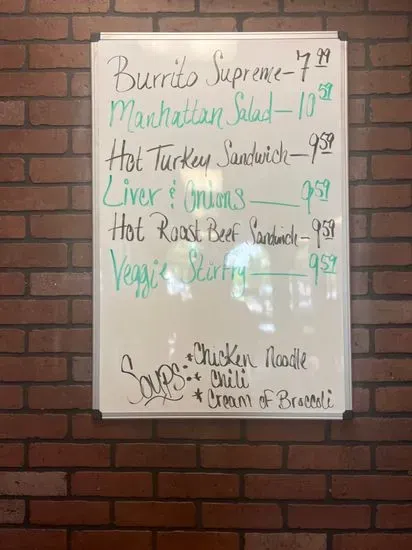 Burrito Supreme - 7 99
Manhattan Salad - 10 59
Hot Turkey Sandwich - 9 59
Liver & Onions - 9 59
Hot Roast Beef Sandwich - 9 59
Veggie Stirfry - 9 59
Soups: * Chicken Noodle
* Chili
* Cream of Broccoli